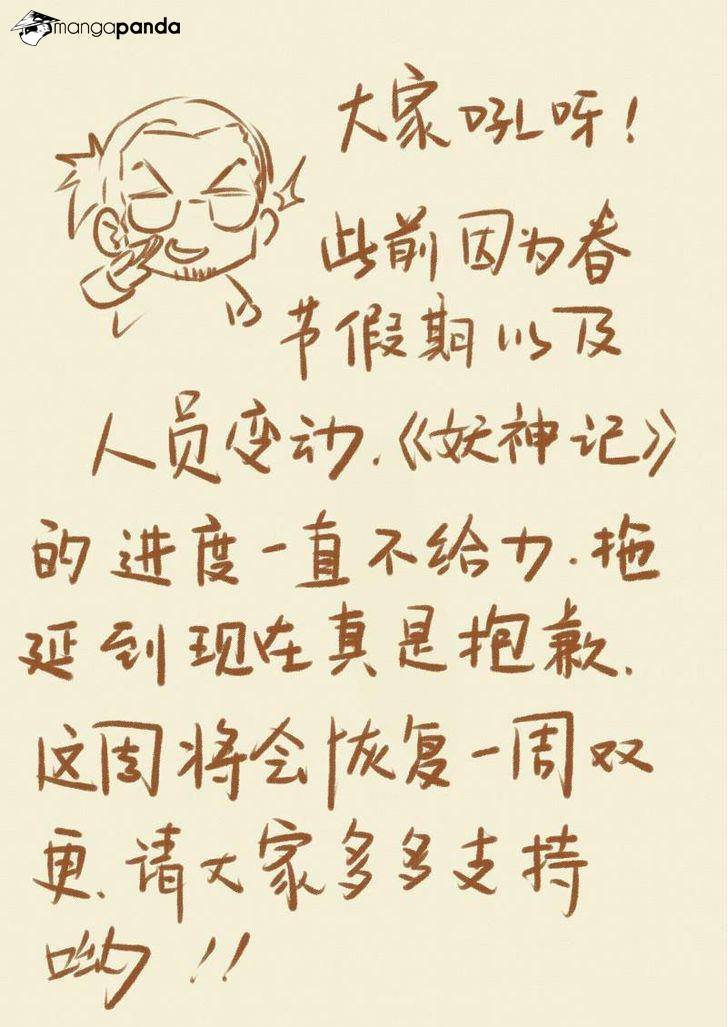 mangapanda
大家吼呀！
此前因为春
节假期以及
人员变动.《妖神记》
的进度一直不给力.拖
延到现在真是抱歉.
这周将会恢复一周双
更.请大家多多支持
呦!!